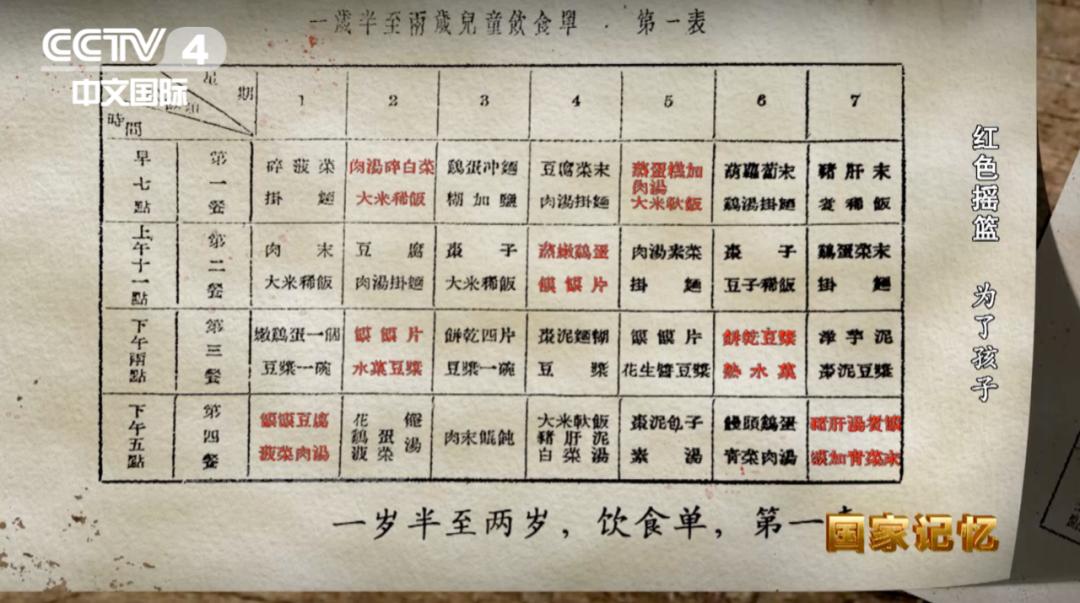 一歲半至兩歲兒童飲食單 · 第一表
CCTV 4
中文国际
星期
時間
1 2 3 4 5 6 7
早七點 第一餐
碎菠菜 肉湯碎白菜 鷄蛋冲麵 豆腐菜末 蒸蛋糕加肉湯 葫蘿蔔末 豬肝末
掛麵 大米稀飯 糊加鹽 肉湯掛麵 大米軟飯 鷄湯掛麵 煮稀飯
上午十一點 第二餐
肉末 豆腐 棗子 蒸嫩鷄蛋 肉湯素菜 棗子 鷄蛋菜末
大米稀飯 肉湯掛麵 大米稀飯 饃饃片 掛麵 豆子稀飯 掛麵
下午兩點 第三餐
嫩鷄蛋一個 饃饃片 餅乾四片 棗泥麵糊 饃饃片 餅乾豆漿 洋芋泥
豆漿一碗 水菓豆漿 豆漿一碗 豆漿 花生醬豆漿 熟水菓 棗泥豆漿
下午五點 第四餐
饃饃豆腐 花卷 肉末餛飩 大米軟飯 棗泥包子 饅頭鷄蛋 豬肝湯煮饃
菠菜肉湯 鷄蛋菠菜湯 豬肝泥 素湯 青菜肉湯 饃加青菜末
白菜湯
红色摇篮 为了孩子
一岁半至两岁，饮食单，第一表
国家记忆